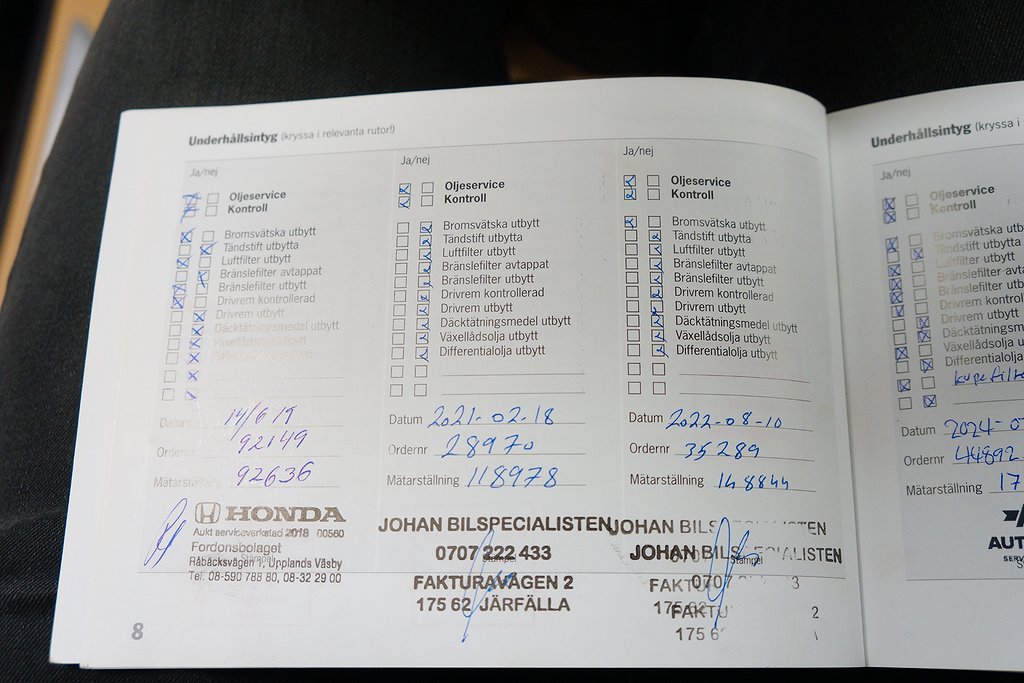 Underhållsintyg (kryssa i relevanta rutor!)
Ja/nej
Oljeservice
Kontroll
Bromsvätska utbytt
Tändstift utbytta
Luftfilter utbytt
Bränslefilter avtappat
Bränslefilter utbytt
Drivrem kontrollerad
Drivrem utbytt
Däcktätningsmedel utbytt
Växellådsolja utbytt
Differentialolja utbytt
Datum
Ordernr 92149
Mätarställning 92636
HONDA
Aukt serviceverkstad 2018 00560
Fordonsbolaget
Stämpel
Räbäcksvägen 1, Upplands Väsby
Tel. 08-590 788 80, 08-32 29 00
8
Ja/nej
Oljeservice
Kontroll
Bromsvätska utbytt
Tändstift utbytta
Luftfilter utbytt
Bränslefilter avtappat
Bränslefilter utbytt
Drivrem kontrollerad
Drivrem utbytt
Däcktätningsmedel utbytt
Växellådsolja utbytt
Differentialolja utbytt
Datum 2021-02-18
Ordernr 28970
Mätarställning 118978
JOHAN BILSPECIALISTEN
0707 222 433
Stämpel
FAKTURAVÄGEN 2
175 62 JÄRFÄLLA
Ja/nej
Oljeservice
Kontroll
Bromsvätska utbytt
Tändstift utbytta
Luftfilter utbytt
Bränslefilter avtappat
Bränslefilter utbytt
Drivrem kontrollerad
Drivrem utbytt
Däcktätningsmedel utbytt
Växellådsolja utbytt
Differentialolja utbytt
Datum 2022-08-10
Ordernr 35289
Mätarställning 148844
JOHAN BILSPECIALISTEN
JOHAN BILSPECIALISTEN
Stämpel
Underhållsintyg (kryssa i
Ja/nej
Oljeservice
Kontroll
Bromsvätska utbytt
Tändstift utbytta
Luftfilter utbytt
Bränslefilter
Bränslefilter
Drivrem
Drivrem utbytt
Däcktätningsmedel
Växellådsolja
Differentialolja
Datum 2024-0
Ordernr 44892
Mätarställning 17
AUT